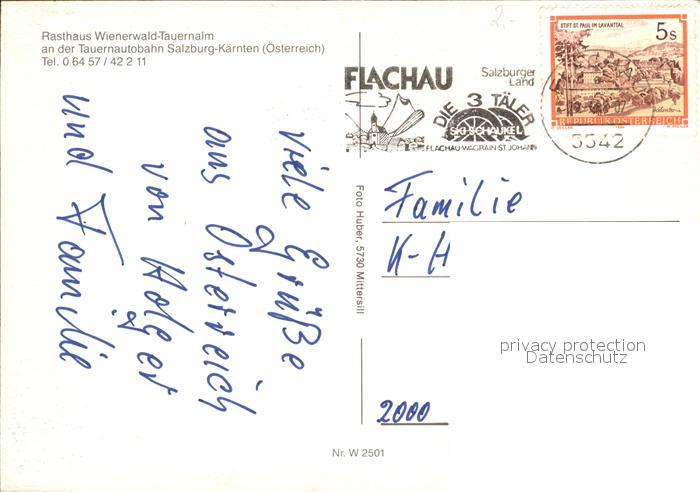 2.-
Rasthaus Wienerwald-Tauernalm
an der Tauernautobahn Salzburg-Kärnten (Österreich)
Tel. 0 64 57 / 42 2 11
viele Grüße
aus Österreich
von Holger
und Familie
Foto Huber, 5730 Mittersill
Nr. W 2501
FLACHAU
Salzburger
Land
DIE 3 TÄLER
SKI-SCHAUKEL
FLACHAU-WAGRAIN-ST. JOHANN
STIFT ST. PAUL IM LAVANTTAL
5s
REPUBLIK ÖSTERREICH
5542
Familie
K-H
privacy protection
Datenschutz
2000